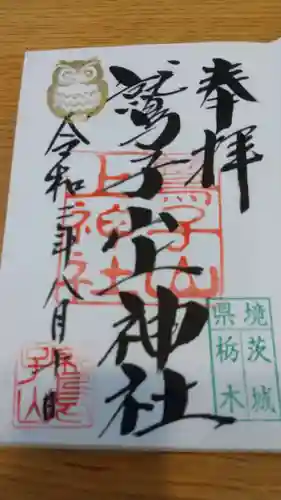 奉拝
鷲子山上神社
令和二年八月十日
鷲子山上神社
県境
栃茨
木城